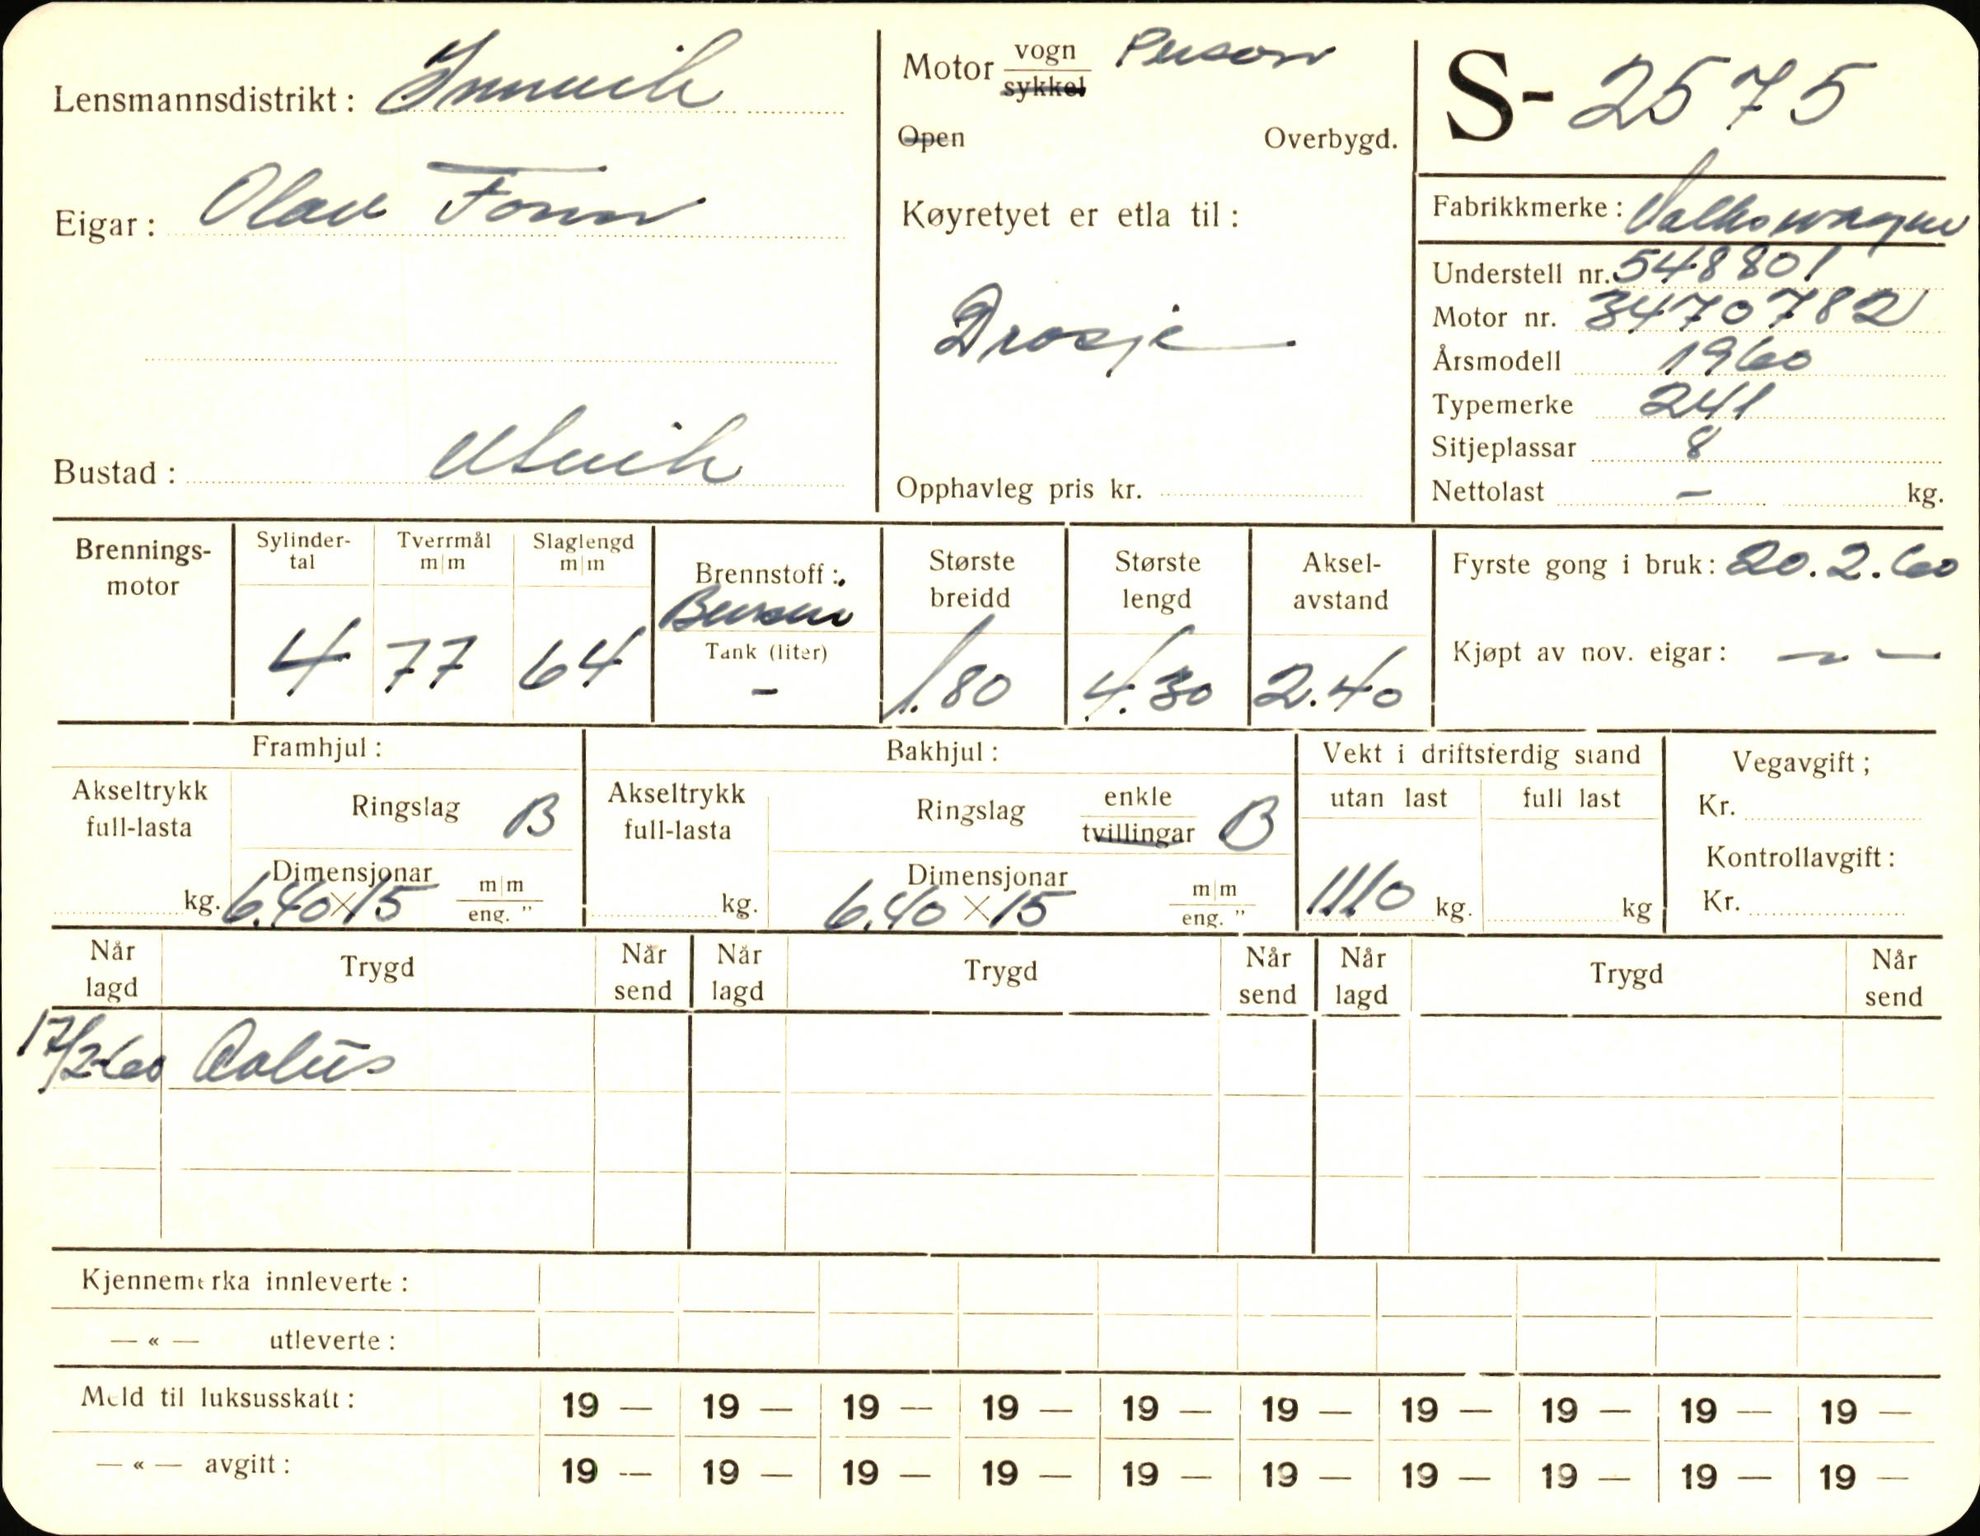 Lensmannsdistrikt: Innvik
Eigar: Olav Fonn
Bustad: Utvik
Motor vogn Person
sykkel
Open Overbygd.
Køyretyet er etla til:
Drosje
Opphavleg pris kr.
S- 2575
Fabrikkmerke: Volkswagen
Understell nr. 548801
Motor nr. 3470782
Årsmodell 1960
Typemerke 241
Sitjeplassar 8
Nettolast – kg.
Brennings-
motor
Sylinder-
tal
4
Tverrmål
m|m
77
Slaglengd
m|m
64
Brennstoff:
Bensin
Tank (liter)
–
Største
breidd
1.80
Største
lengd
4.30
Aksel-
avstand
2.40
Fyrste gong i bruk: 20.2.60
Kjøpt av nov. eigar: — —
Framhjul:
Akseltrykk
full-lasta
kg.
Ringslag B
Dimensjonar
6.40×15 m|m
eng. "
Bakhjul:
Akseltrykk
full-lasta
kg.
Ringslag enkle B
tvillingar
Dimensjonar
6.40×15 m|m
eng. "
Vekt i driftsferdig stand
utan last full last
1110 kg. kg
Vegavgift;
Kr.
Kontrollavgift:
Kr.
Når lagd Trygd Når send Når lagd Trygd Når send Når lagd Trygd Når send
17/2-60
Kjennemerka innleverte:
— « — utleverte:
Meld til luksusskatt: 19 — 19 — 19 — 19 — 19 — 19 — 19 — 19 — 19 — 19 —
— « — avgift: 19 — 19 — 19 — 19 — 19 — 19 — 19 — 19 — 19 — 19 —